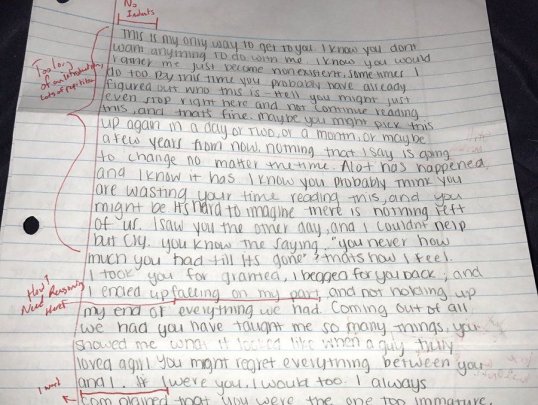 No
Indents
This is my only way to get to you. I know you dont
want anything to do with me, I know you would
rather me just become nonexistent, sometimes I
do too. By this time you probably have already
figured out who this is - Hell you might just
even stop right here and not continue reading
this, and thats fine. maybe you might pick this
up again in a day or two, or a month, or maybe
a few years from now. nothing that I say is going
to change no matter the time. Alot has happened,
and I know it has I know you probably think you
are wasting your time reading this, and you
might be Its hard to imagine there is nothing left
of us. I saw you the other day, and I couldnt help
but cry. you know the saying, "you never how
much you had till its gone" thats how I feel.
I took you for granted, I begged for you back, and
I ended up falling on my part, and not holding up
my end of everything we had. Coming out of all
we had you have taught me so many things, you
showed me what it looked like when a guy truly
loved a girl You might regret everything between you
and I. If I were you, I would too. I always
complained that you were the one too immature,
Too long
of an introduction,
lots of repetition
How?
Need Reasoning
Here!